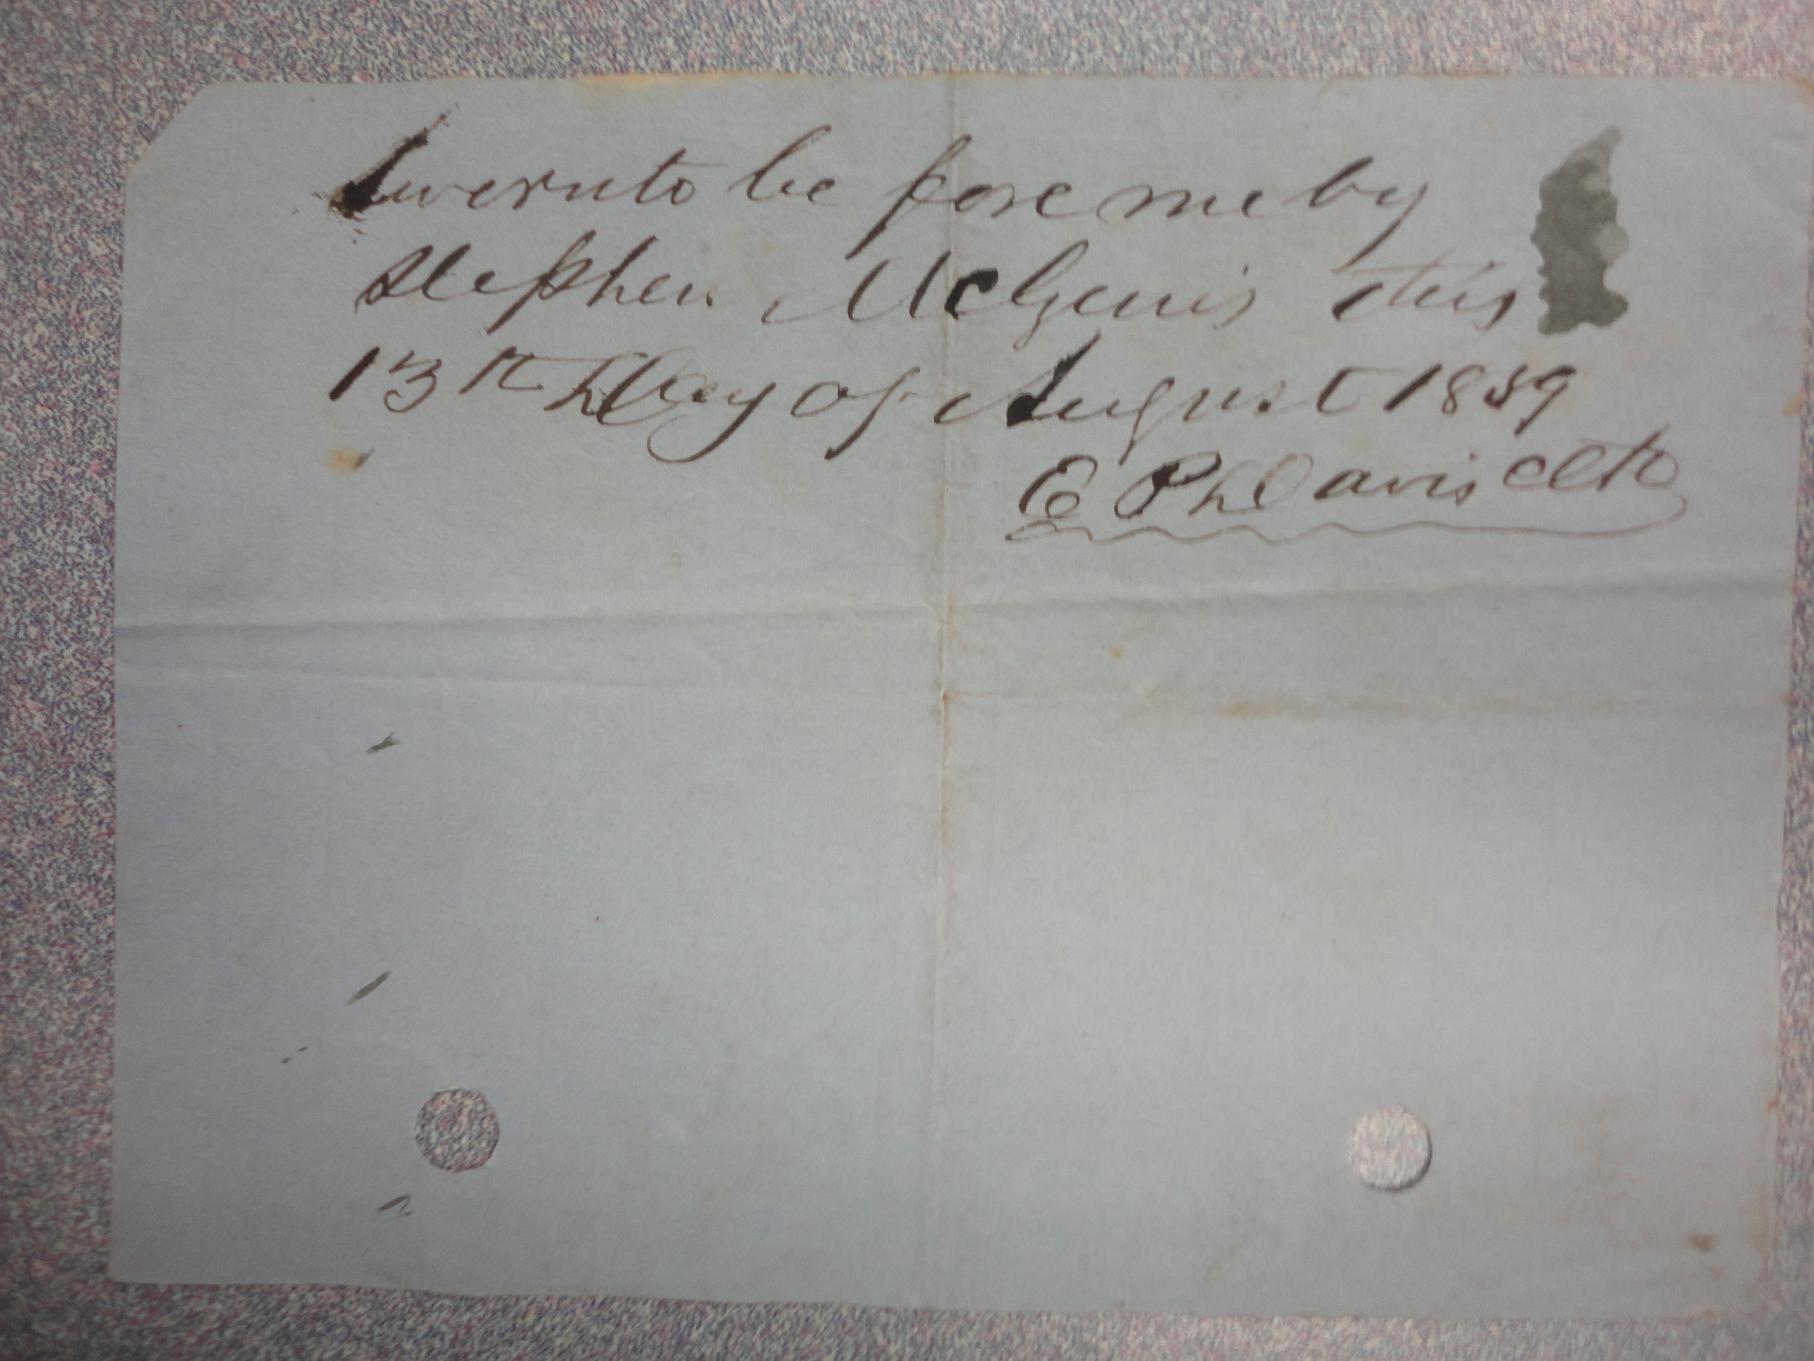 Swernto be fore me by
Stephen McGinis this
13th Day of August 1859
E Ph Davis Clk